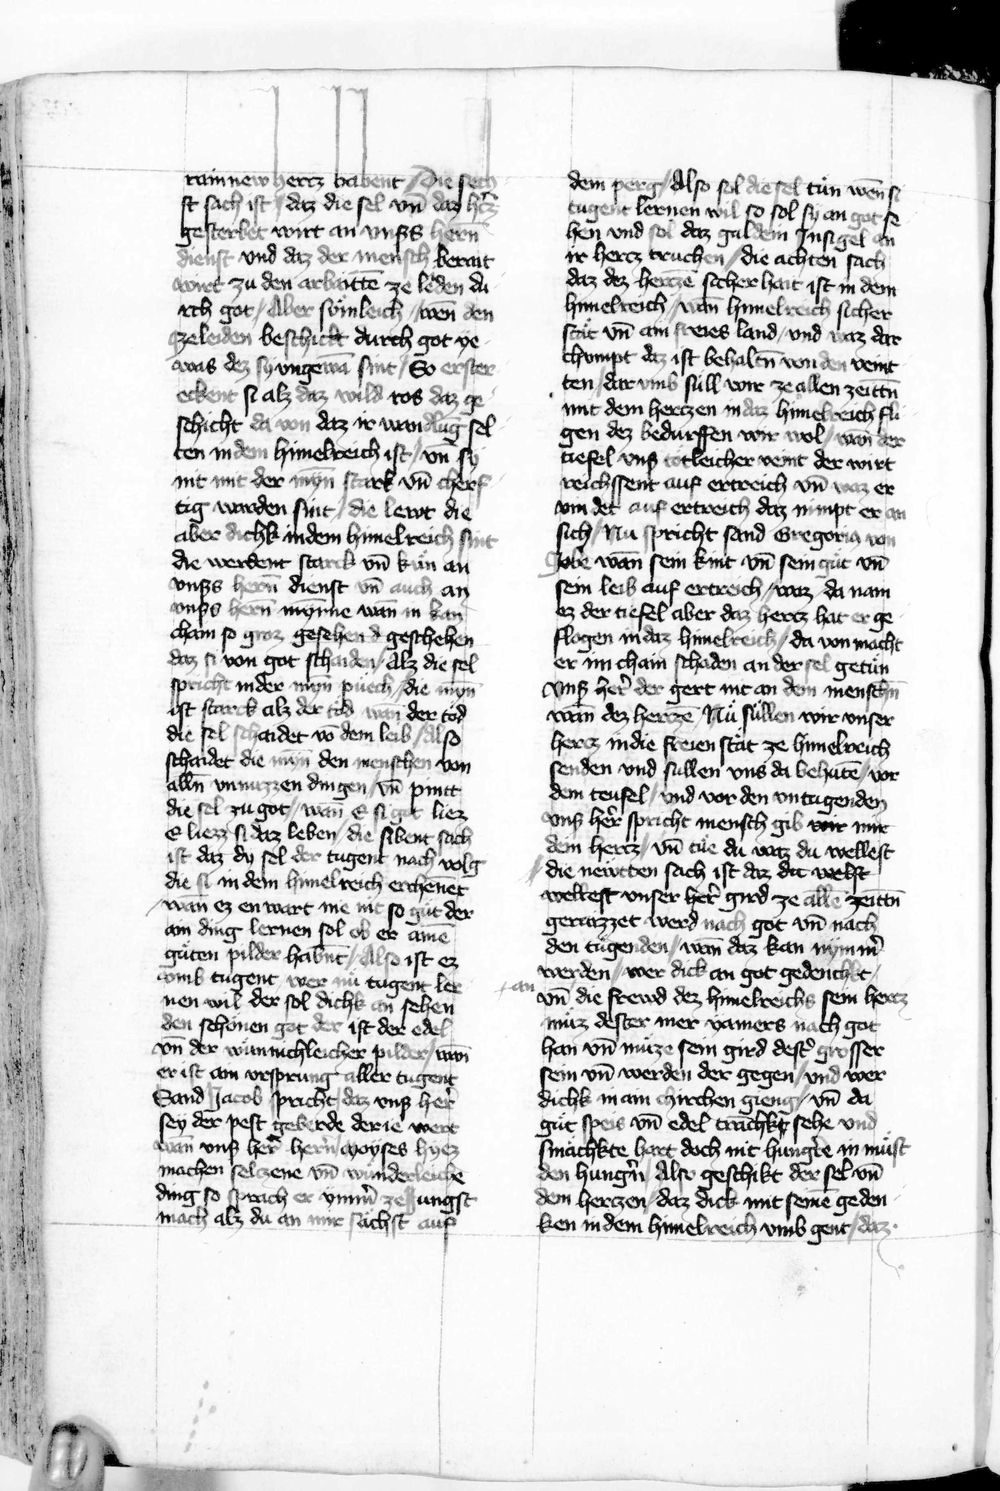 rainnew hertz habent / Die sech
st sach ist / daz die sel vn̄ daz h̄tz
gesterket wirt an vnsßs herñ
dienst vnd daz der mensch berait
wirt zu den arbaittē ze leiden du
rch got / Aber sünleich / wēn den
zeleiden beschicht durch got ye
was dez sy vngewā sint / So erster
eckent si alz daz wild ros daz ge
schicht da von daz ir wandlūg sel
ten in dem himelreich ist / vn̄ sy
nit mit der myn̄ stark vn̄ chref
tig warden sint / die lewt die
aber dichk in dem himelreich sint
die werdent starck vn̄ kün an
vnsßs herñ dienst vn̄ auch an
vnsßs herñ mynne wan in kan
chain so groz gesehen d geschehen
daz si von got schaiden / Alz die sel
spricht in der myn̄ püech / die myn̄
ist starck alz der tod wan̄ der tod
die sel schaidet vō dem leib / Also
schaidet die myn̄ den menschen von
alln̄ vnnuczzen dingen / vn̄ pintt
die sel zu got / wan̄ e si got liez
e liezz si daz leben / die sibent sach
ist daz dy sel der tugent nach volg
die si in dem himelreich erchennet
wan̄ ez enwart nie nit so güt der
ain ding lernen sol ob er ainē
güten pilder habnt / Also ist ez
vmb tugent wer nü tugent ler
nen wil der sol dichk an sehen
den schönen got der ist der edel
vn̄ der wunnichleicher pilder / wan̄
er ist ain vrsprung aller tugent
Sand Jacob spricht / daz vnsß her̄
sey der pest geberde der ie wert
wan̄ vnsß her̄ herñ / moyses hyez
machen selczene vn̄ wunderleiche
ding so sprach er ymm̄ ze jungst
mach alz du an mir sächst auf
dem perg / Also sol die sel tün wen̄ si
tugent lernen wil so sol sy an got se
hen vnd sol daz guldein Insigel an
ir hercz truchen / die achten sach
daz dez herczē sicherhait ist in dem
himelreich / wan̄ himelreich sicher
stat vn̄ ain freies land / vnd waz dar
chympt daz ist behaltn̄ von den veint
ten / dar vmb süll wir ze allen zeittn̄
mit dem herczen in daz himelreich fli
gen dez bedurffen wir wol / wan̄ der
tiefel vnsß totleicher veint der wirt
reichssent auf ertreich vn̄ waz er
vindet auf ertreich daz nimpt er an
sich / Nu spricht sand Gregorig von
Jobe wan̄ sein kint vn̄ sein güt vn̄
sein leib auf ertreich / waz / da nam
ez der tiefel aber daz hercz hat er ge
flogen in daz himelreich / da von macht
er im chain schaden an der sel getün
vnsß her̄ der gert nit an dem menschn̄
wan̄ dez herczē Nü süllen wir vnser
hercz in die freien stat ze himelreich
senden vnd sullen vns da behütē / vor
dem teufel / vnd vor den vntugenden
vnsß her̄ spricht mensch gib mir
dein hercz / vn̄ tüe du waz du wellest
die newnten sach ist daz dit welst
wellest vnser her̄ gird ze alle zeittn̄
geraizzet werd nach got vn̄ nach
den tügenden / wan̄ daz kan nymm̄
werden / wer dick an got gedenchkt /
an vn̄ die frewd dez himelreichs sein hercz
müz dester mer yamers nach got
han vn̄ müze sein gird dest̄ grosser
sein vn̄ werden der gegen / vnd wer
dichk in ain chirchen gieng / vn̄ da
güt speis vn̄ edel tranchkt sehe vnd
smachkte hart doch nit hungt̄e in müst
den hungn̄ / Also geschikt der sel vn̄
dem herczen / daz dick mit seinē geden
ken in dem himelreich vmb gent / daz